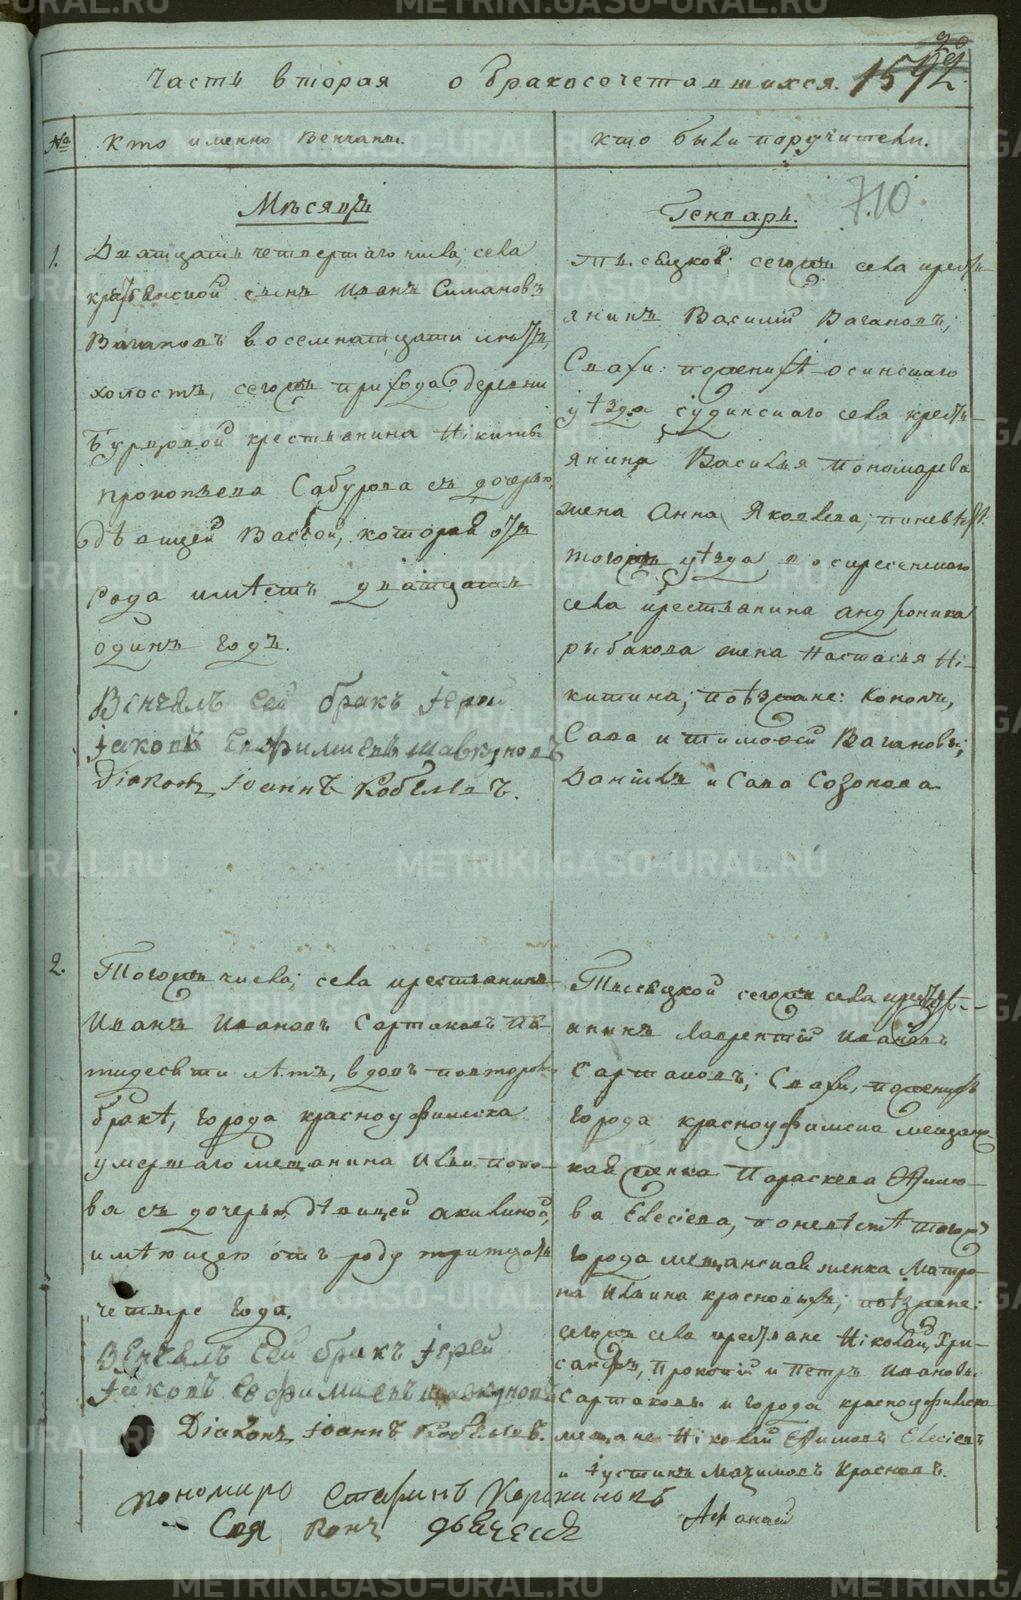 Часть вторая о бракосочетавшихся.
№
Кто именно венчаны.
Кто были поручители.
710
Мѣсяцъ
Генварь.
1.
Дватцать четвертаго числа, села
крестьянской сынъ Иванъ Симановъ
Вагановъ восемнатцати лѣтъ,
холостъ, сегожъ прихода деревни
Бурцовой крестьянина Никиты
Прокопьева Сабурова съ дочерью
дѣвицей Вассой, которая отъ
рода имѣетъ дватцать
одинъ годъ.
Венчалъ сей бракъ іерей
Іаковъ Евфимиевъ Шавкуновъ
Діаконъ Іоаннъ Кобелевъ.
Тысяцкой: сегожъ села кресть-
янинъ Василій Вагановъ;
Свахи: по женихѣ Осинскаго
уѣзда Судинскаго села кресть-
янина Василья Пономарева
жена Анна Яковлева; по невѣстѣ
тогожъ уѣзда Воскресенскаго
села крестьянина Андроника
Рыбакова жена Настасья Ни-
китина; поѣзжане: Кононъ,
Сава и Тимофей Вагановы,
Данила и Сава Созонова
2.
Тогожъ числа, села крестьянинъ
Иванъ Ивановъ Сартаковъ пя-
тидесяти лѣтъ, вдовъ повторомъ
бракѣ, города Красноуфимска
умершаго мещанина Ильи Попо-
ва съ дочерью дѣвицей Акилиной,
имѣющею отъ роду тритцать
четыре года.
Венчалъ сей бракъ іерей
Іаковъ Евфимиевъ Шавкуновъ
Діаконъ Іоаннъ Кобелевъ.
Тысяцкой сегожъ села кресть-
янинъ Лаврентій Ивановъ
Сартаковъ; Свахи, по женихѣ
города Красноуфимска мещанс-
кая женка Параскева Ефимо-
ва Елесіева, по невѣстѣ тогожъ
города мещанская женка Матро-
на Ильина Красновыхъ; поѣзжане:
сегожъ села крестьяне Николай, Хри-
санфъ, Прокопій и Петръ Ивановы
Сартаковы и города Красноуфимска
мещане Николай Ефимовъ Елесіевъ
и Іустинъ Максимовъ Красновъ.
пономарь
Афанасій